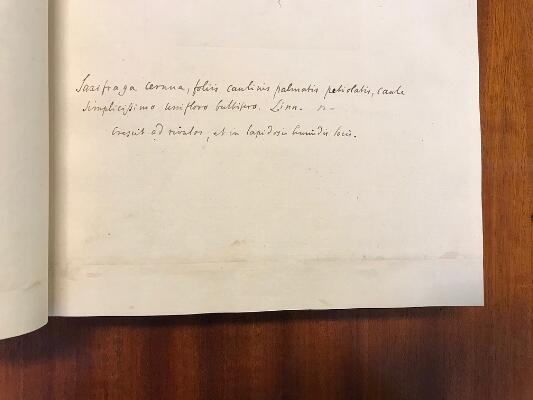 Saxifraga cernua, foliis caulinis palmatis petiolatis, caule
simplicissimo unifloro bulbifero. Linn. n-
Crescit ad rivulos, et in lapidosis humidis locis.